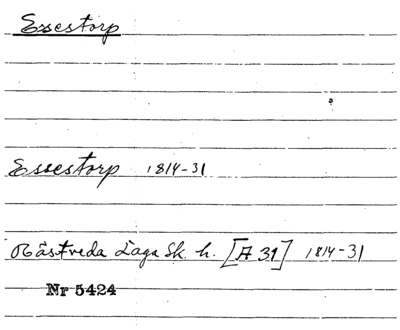 Essestorp
Essestorp 1814-31
Västveda Laga Sk. h. [A 31] 1814-31
Nr 5424